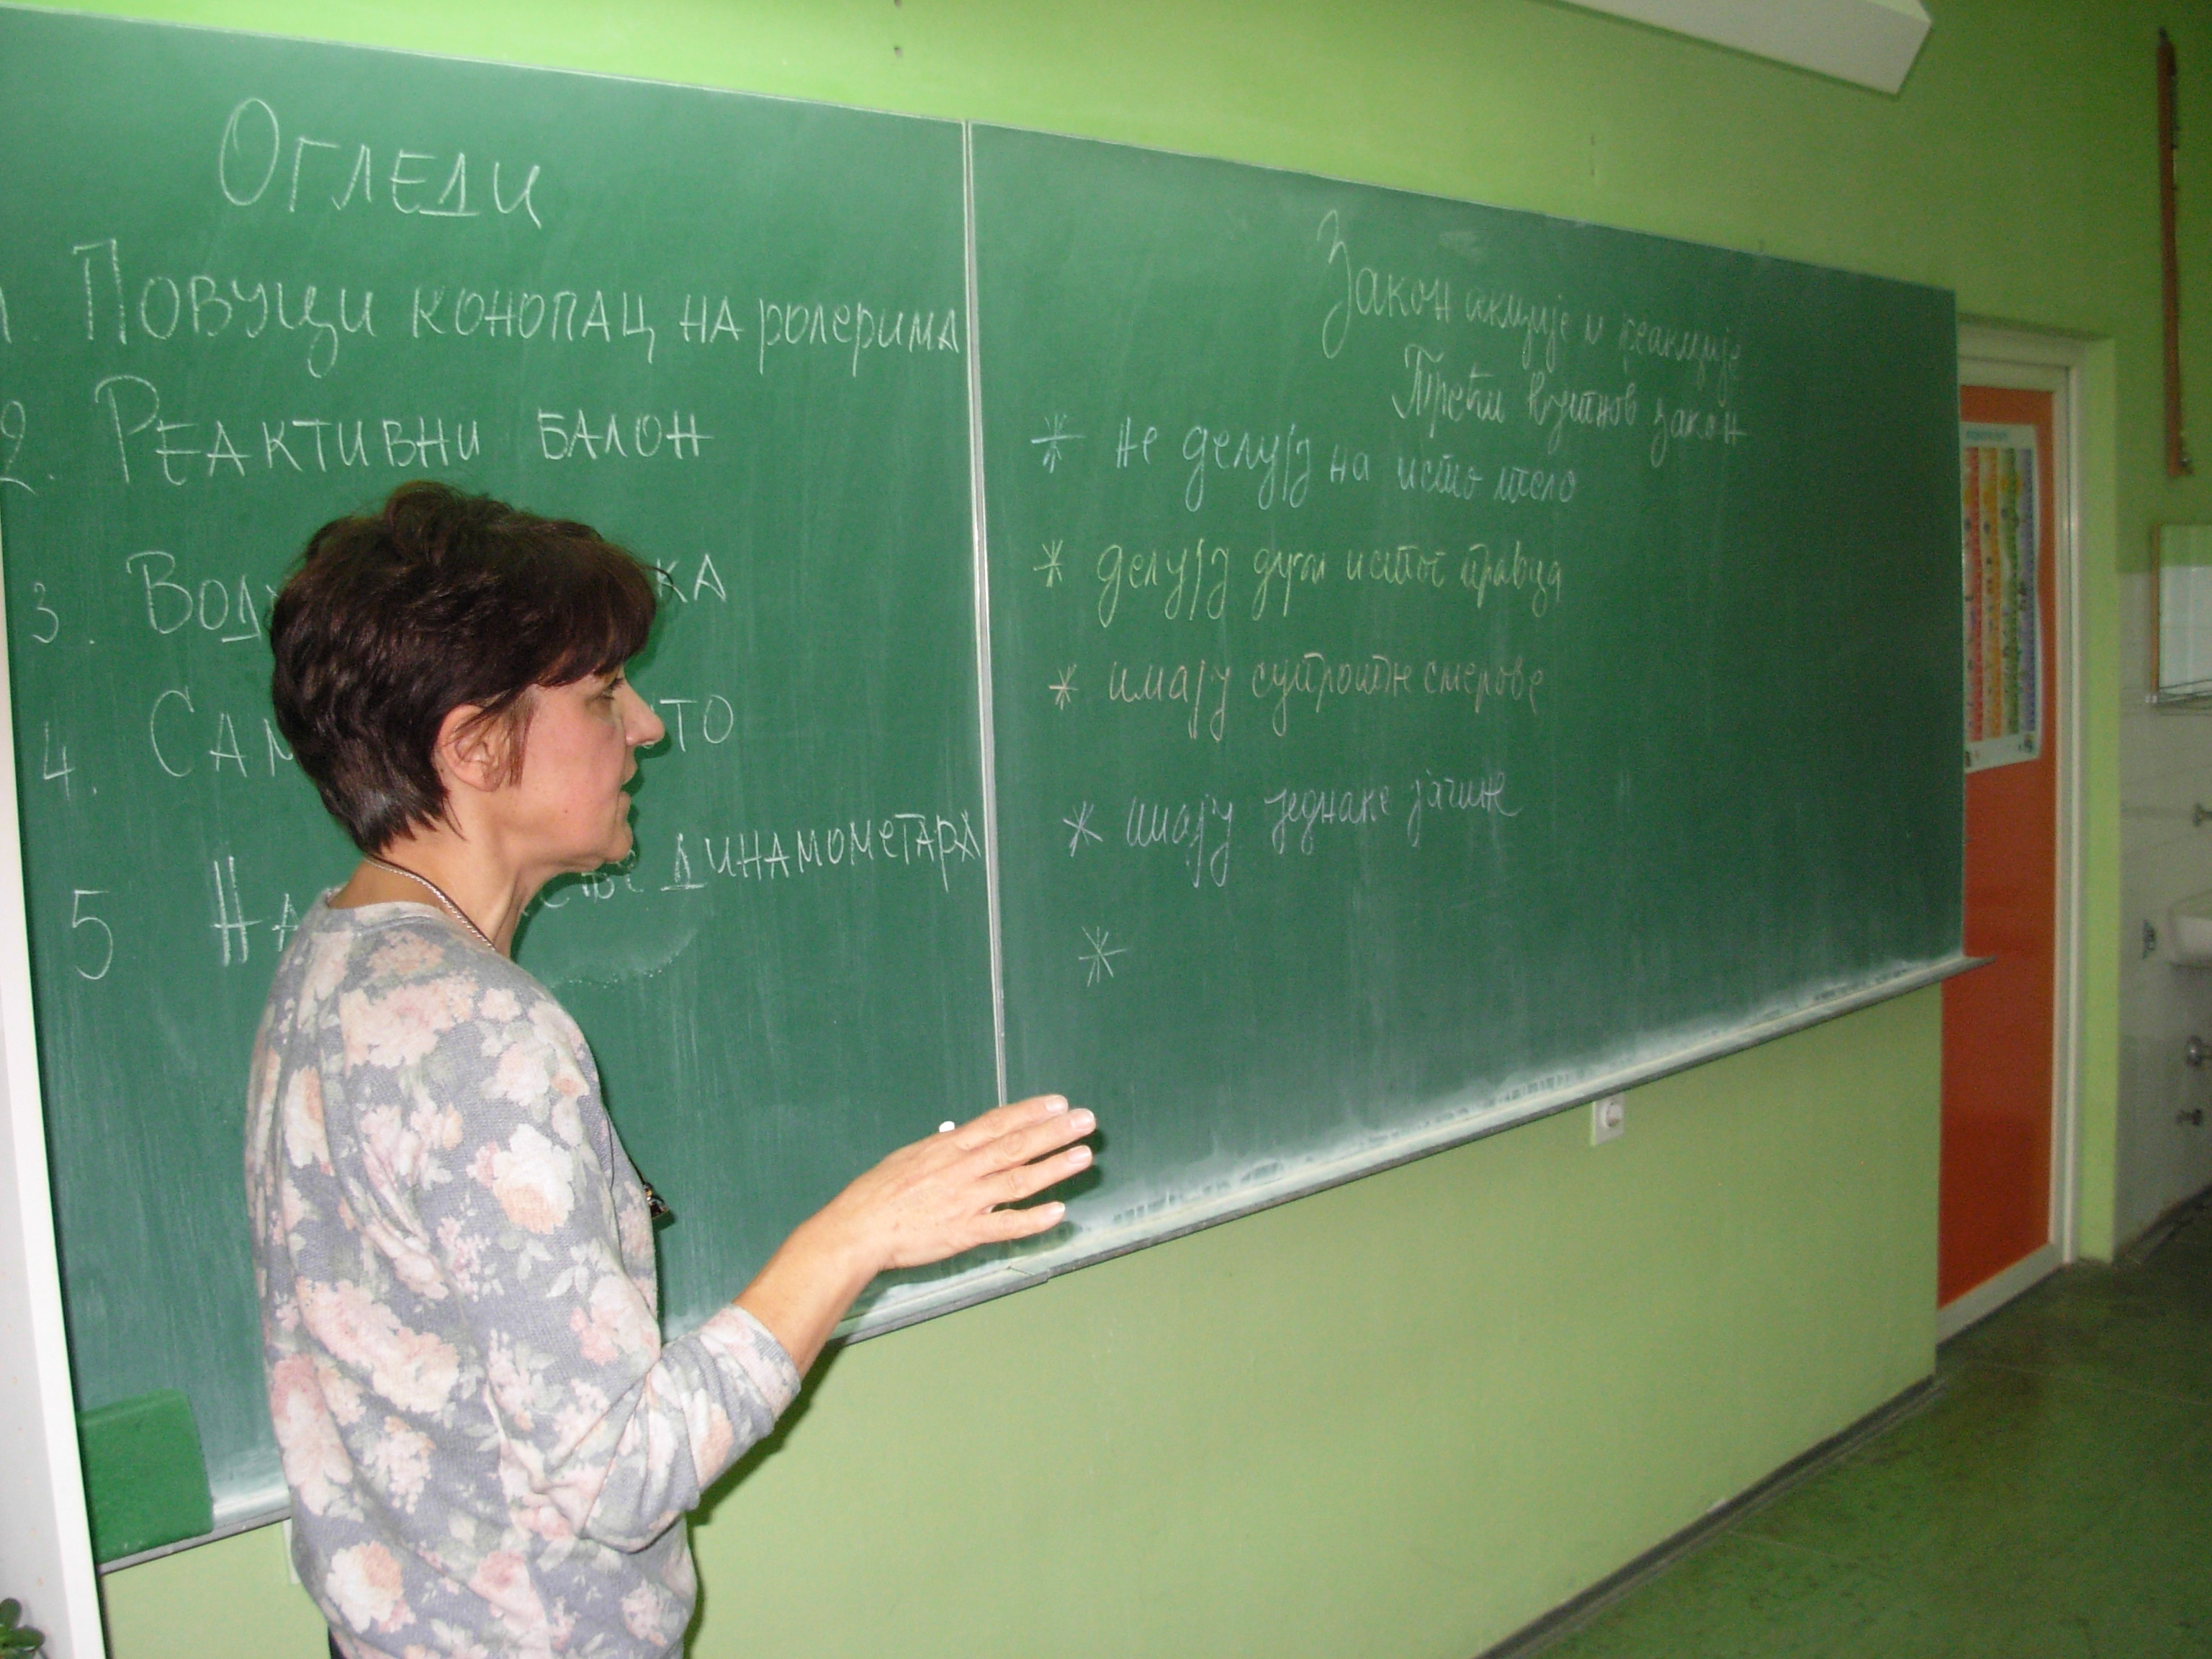 Огледи
1. Повуци конопац на ролерима
2. Реактивни балон
3.
4.
5 динамометара
Закон акције и реакције
Трећи Њутнов закон
* не делују на исто тело
* делују дуж истог правца
* имају супротне смерове
* имају једнаке јачине
*